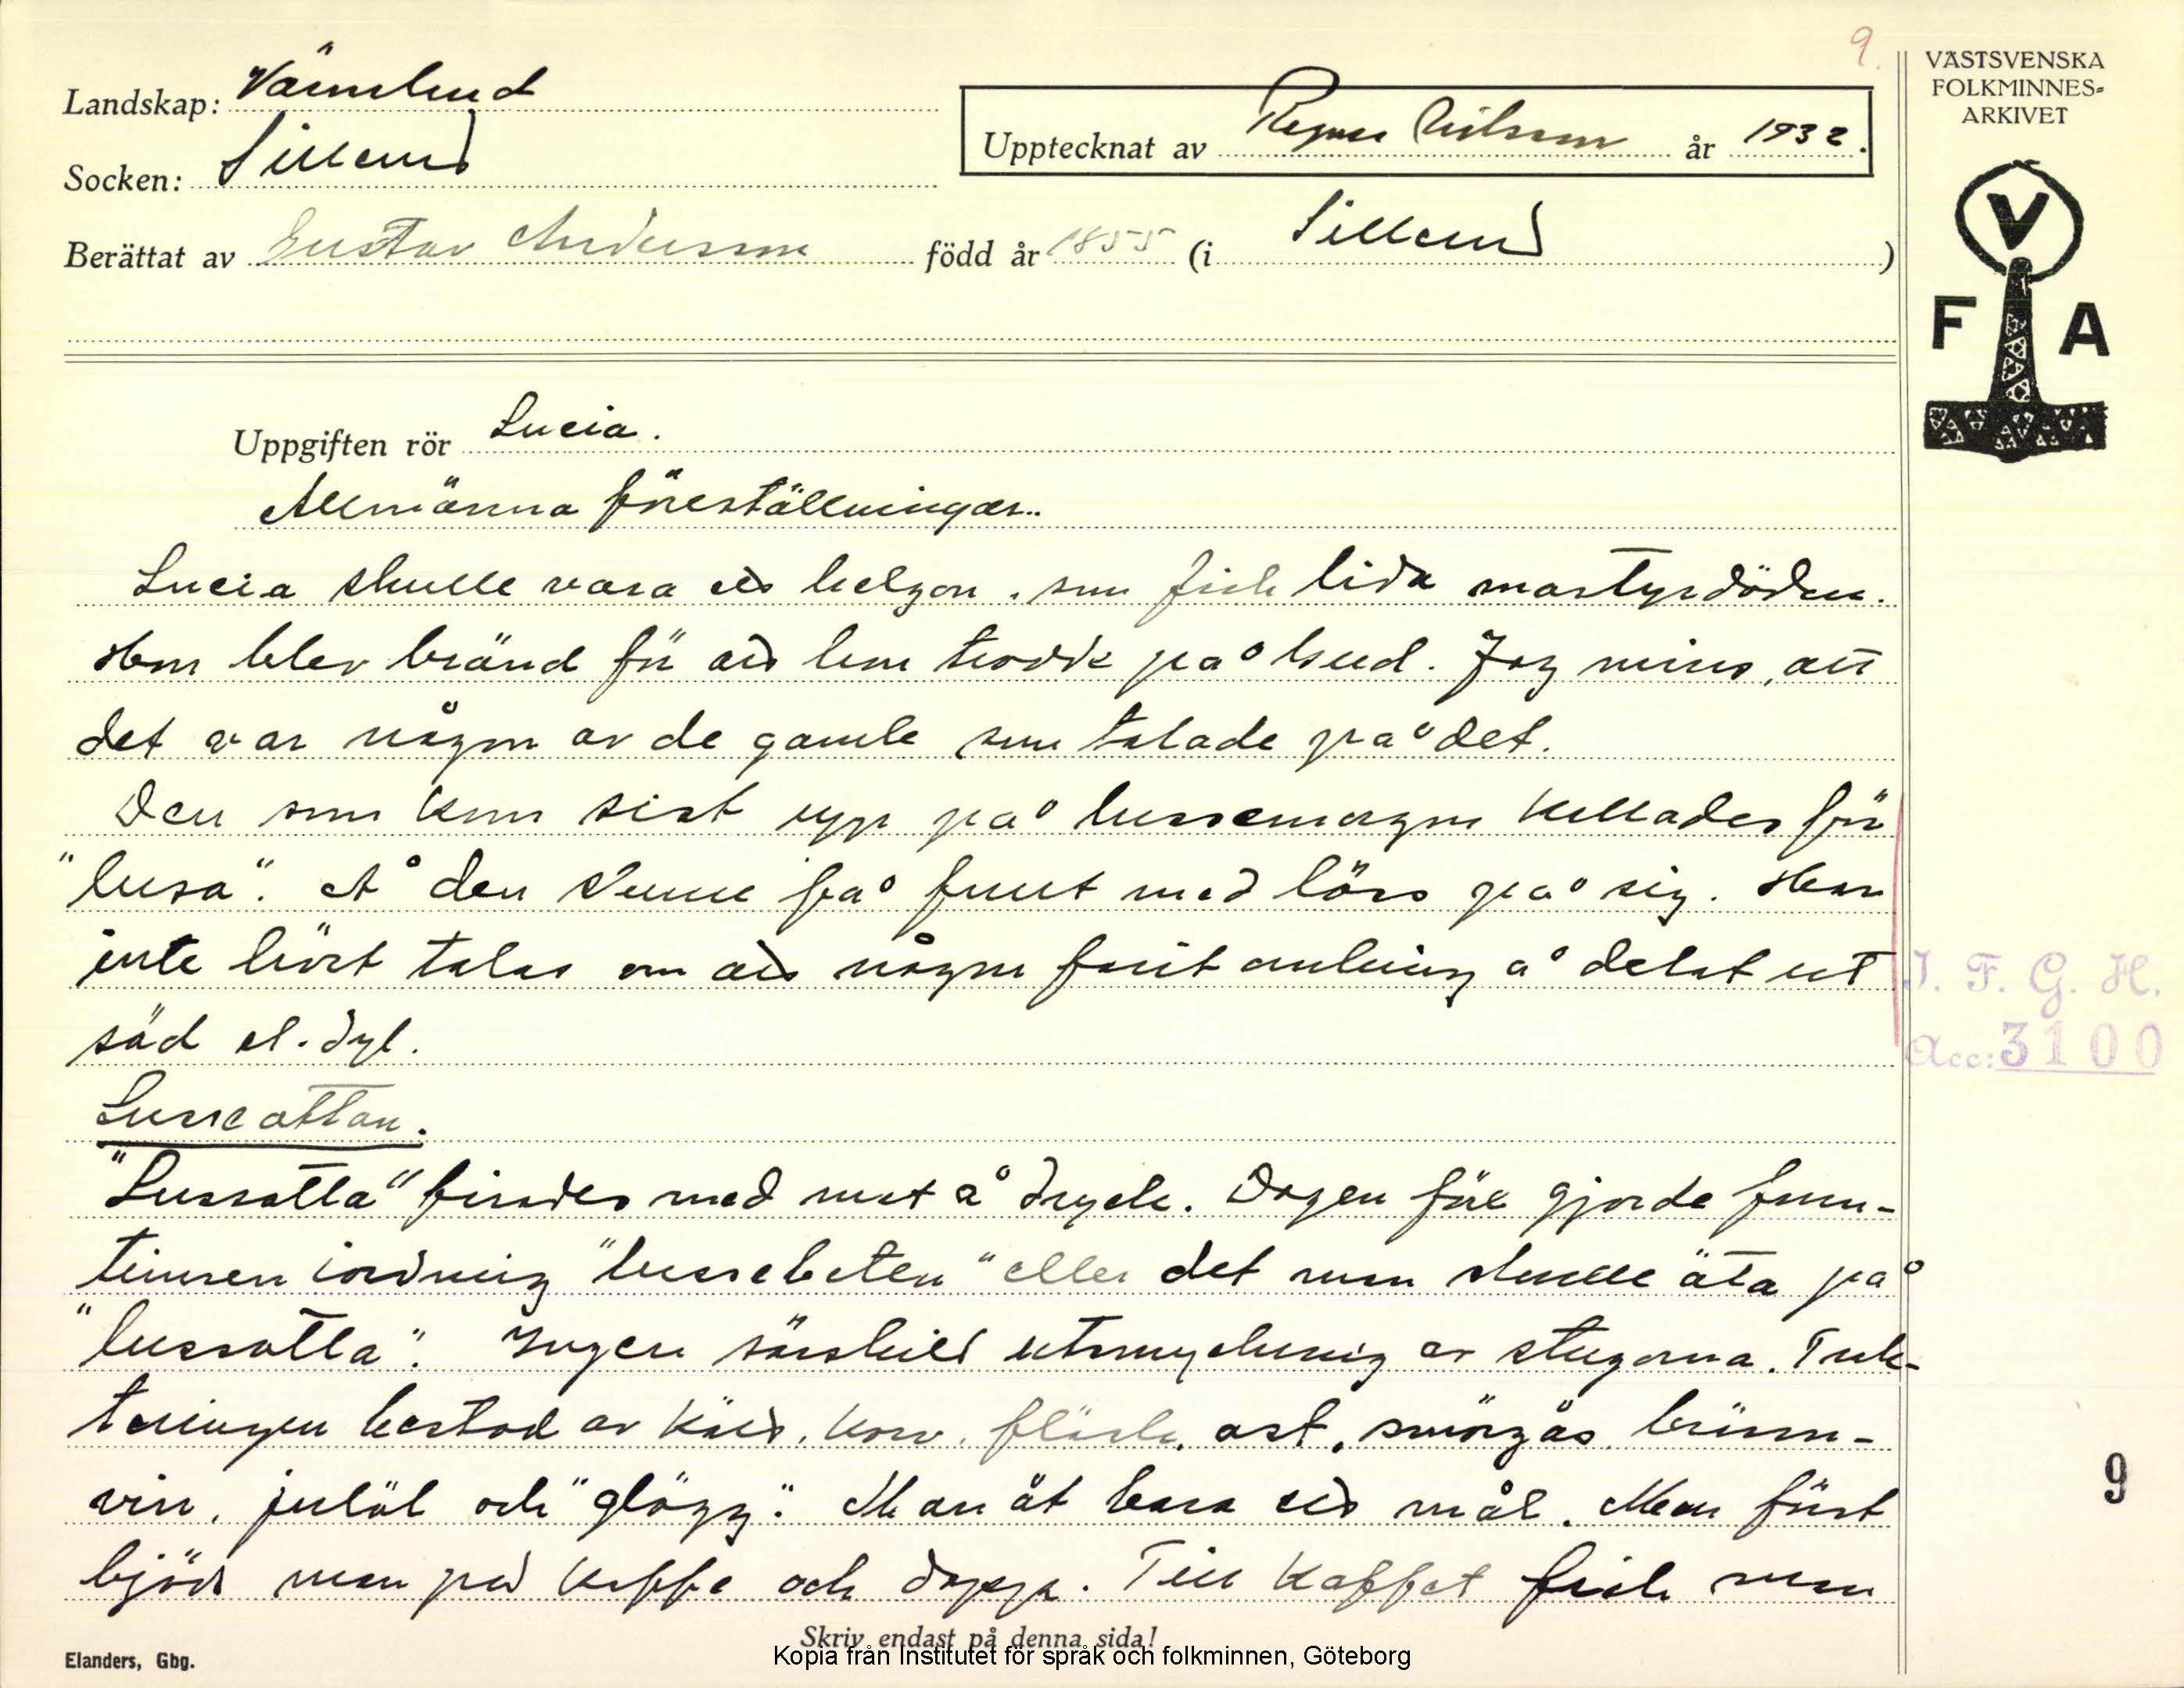 9.
VÄSTSVENSKA
FOLKMINNES-
ARKIVET
V
F A
Landskap: Värmland
Socken: Sillerud
Upptecknat av Ragnar Nilsson år 1932.
Berättat av Gustav Andersson född år 1855 (i Sillerud)
Uppgiften rör Lucia.
Allmänna föreställningar.
Lucia skulle vara ett helgon, som fick lida martyrdöden.
Hon blev bränd för att hon trodde på Gud. Jag minns, att
det var någon av de gamle som talade på det.
Den som kom sist upp på lussemorgon kallades för
"lusa". Å den skulle få fullt med löss på sig. Har
inte hört talas om att någon farit omkring å delat ut
säd el. dyl.
Lusseottan.
"Lussotta" firades med mat å dryck. Dagen före gjorde frun-
timren iordning "lussebeten" eller det man skulle äta på
"lussotta". Ingen särskild utsmyckning av stugorna. Trak-
teringen bestod av kött, korv, fläsk, ost, smörgås, bränn-
vin, julöl och "glögg". Man åt bara ett mål. Men först
bjöds man på kaffe och dopp. Till kaffet fick man
I. F. G. H.
Acc: 3100
9
Skriv endast på denna sida!
Elanders, Gbg.
Kopia från Institutet för språk och folkminnen, Göteborg